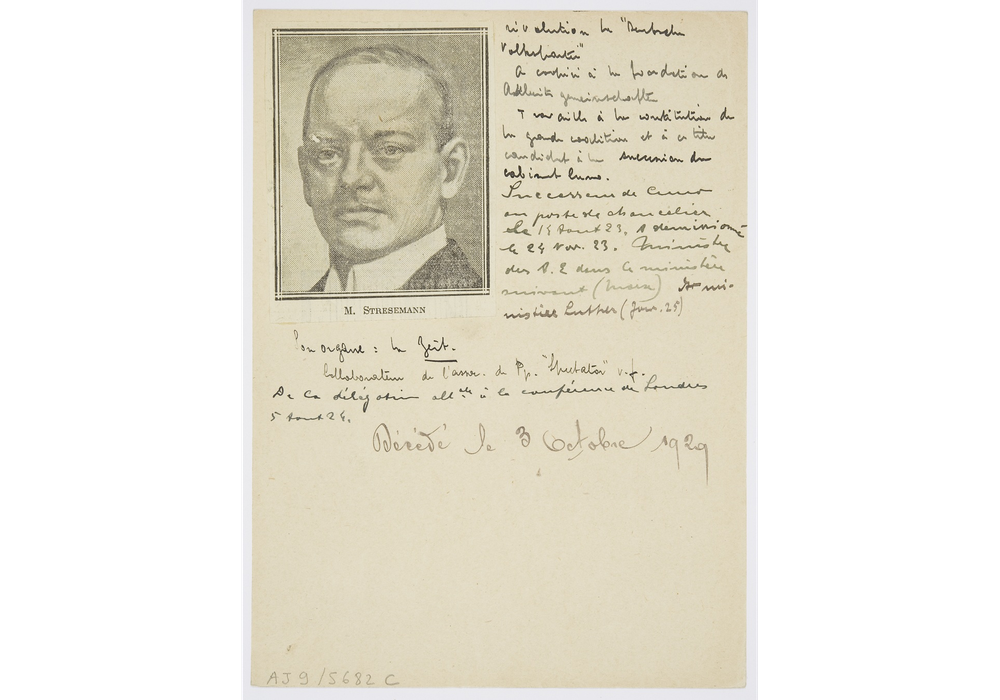 révolution la "Deutsche
Volkspartei"
A coopéré à la fondation de
Arbeitsgemeinschaften
Travaille à la constitution de
la grande coalition et à ce titre
candidat à la succession du
cabinet Cuno.
Successeur de Cuno
au poste de chancelier
le 14 Aout 23. A démissionné
le 24 Nov. 23. Ministre
des A. E dans le ministère
suivant (Marx) et mi-
nistère Luther (Janv. 25)
M. STRESEMANN
Son organe : la Zeit.
Collaborateur de l'assoc. de "Spectator"
De la délégation allde à la conférence de Londres
5 Aout 24.
Décédé le 3 Octobre 1929
AJ9/5682 C